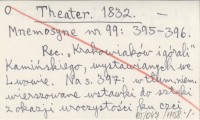 Theater. 1832.
Mnemosyne nr 99: 395-396.
Rec. "Krakowiaków i górali"
Kamińskiego, wystawianych we
Lwowie. Na s. 397: w tłumieniu
wierszowane wstawki do sztuki
z okazji uroczystości ku czci